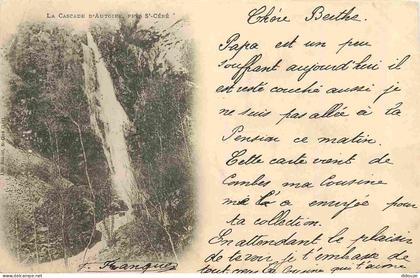 LA CASCADE D'AUTOIRE, PRÈS St-CÉRÉ
Chère Berthe.
Papa est un peu
souffrant aujourd'hui il
est resté couché aussi je
ne suis pas allée à la
Pension ce matin.
Cette carte vient de
Combes ma Cousine
me l'a envoyée pour
ta collection.
En attendant le plaisir
de te voir je t'embrasse de
tout